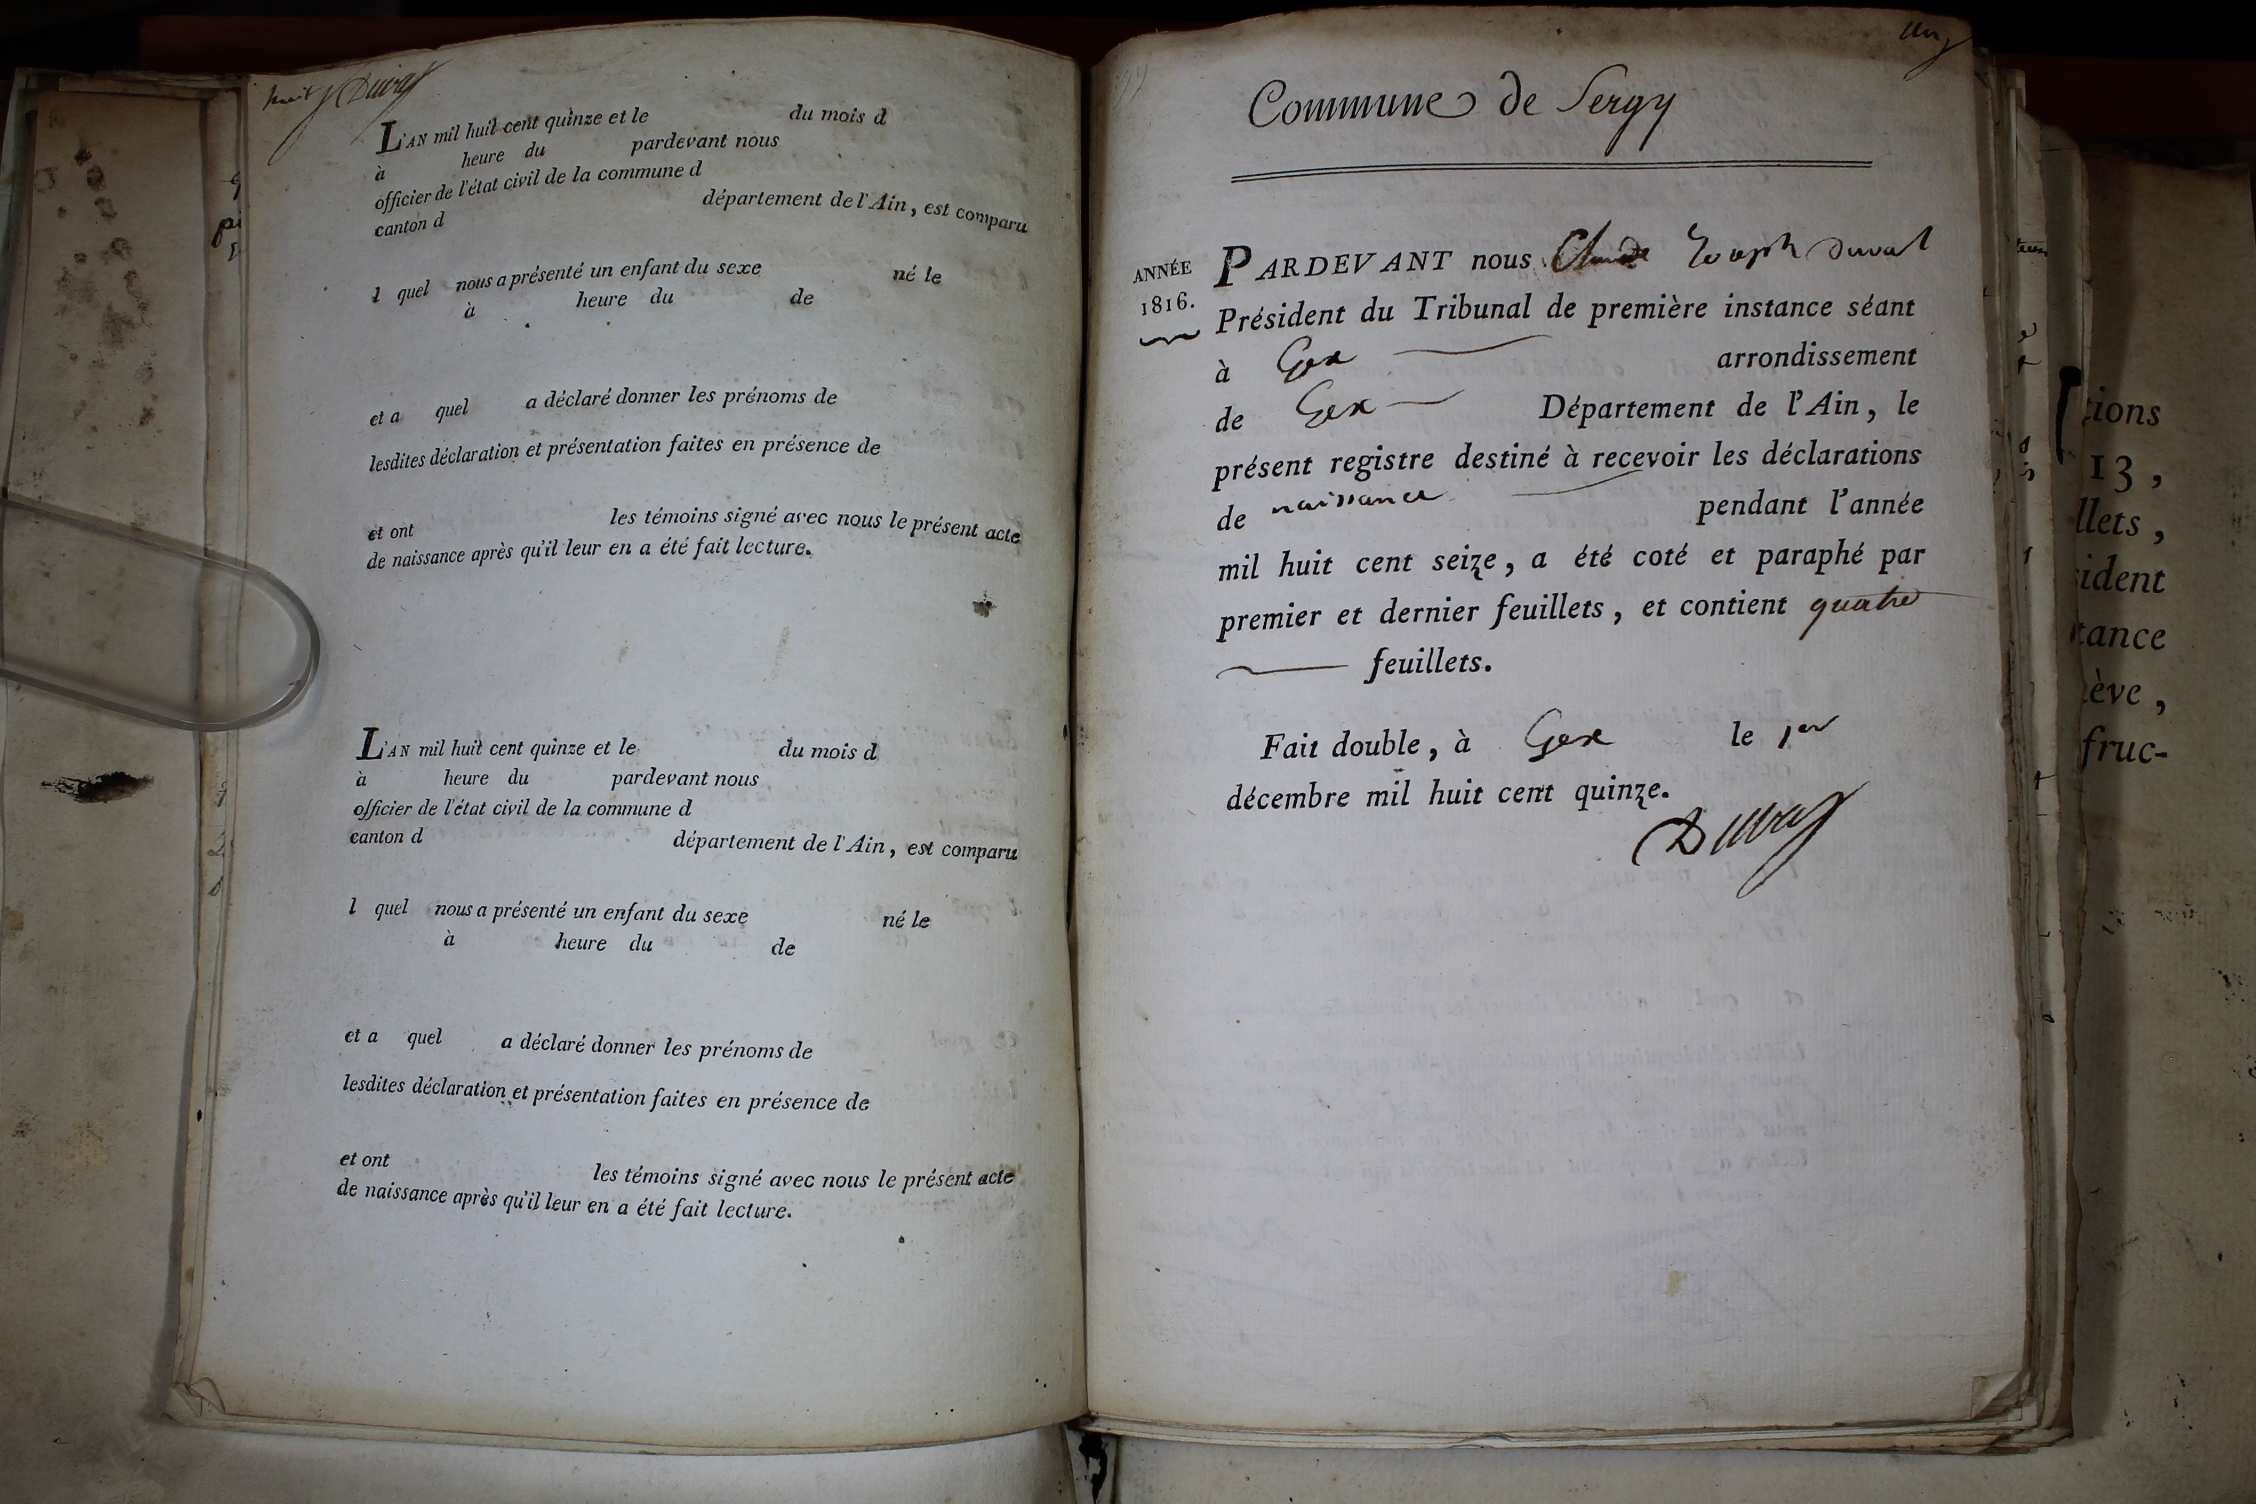 huit Duval
L'AN mil huit cent quinze et le du mois d
à heure du pardevant nous
officier de l'état civil de la commune d
canton d département de l'Ain, est comparu
l quel nous a présenté un enfant du sexe né le
à heure du de
et a quel a déclaré donner les prénoms de
lesdites déclaration et présentation faites en présence de
et ont les témoins signé avec nous le présent acte
de naissance après qu'il leur en a été fait lecture.
L'AN mil huit cent quinze et le du mois d
à heure du pardevant nous
officier de l'état civil de la commune d
canton d département de l'Ain, est comparu
l quel nous a présenté un enfant du sexe né le
à heure du de
et a quel a déclaré donner les prénoms de
lesdites déclaration et présentation faites en présence de
et ont les témoins signé avec nous le présent acte
de naissance après qu'il leur en a été fait lecture.
Commune de Sergy
ANNÉE
1816.
PARDEVANT nous Claude Joseph Duval
Président du Tribunal de première instance séant
à Gex arrondissement
de Gex Département de l'Ain, le
présent registre destiné à recevoir les déclarations
de naissance pendant l'année
mil huit cent seize, a été coté et paraphé par
premier et dernier feuillets, et contient quatre
feuillets.
Fait double, à Gex le 1er
décembre mil huit cent quinze.
Duval
tions
13,
llets,
ident
tance
ève,
fruc-